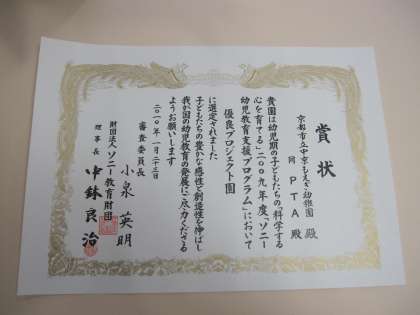 賞状
京都市立中京もえぎ幼稚園 殿
同 PTA 殿
貴園は幼児期の子どもたちの「科学する
心を育てる」二〇〇九年度「ソニー
幼児教育支援プログラム」において
優良プロジェクト園
に選定されました
子どもたちの豊かな感性と創造性を伸ばし
我が国の幼児教育の発展にご尽力くださる
ようお願いします
二〇一〇年一月二十三日
審査委員長
小泉英明
財団法人 ソニー教育財団
理事長
中鉢良治